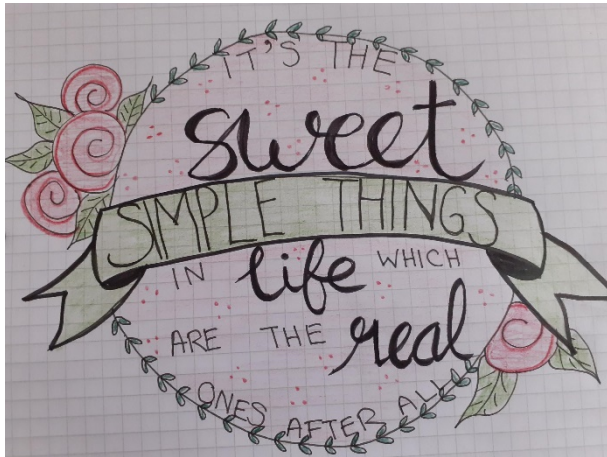 IT'S THE
sweet
SIMPLE THINGS
IN life WHICH
ARE THE real
ONES AFTER ALL